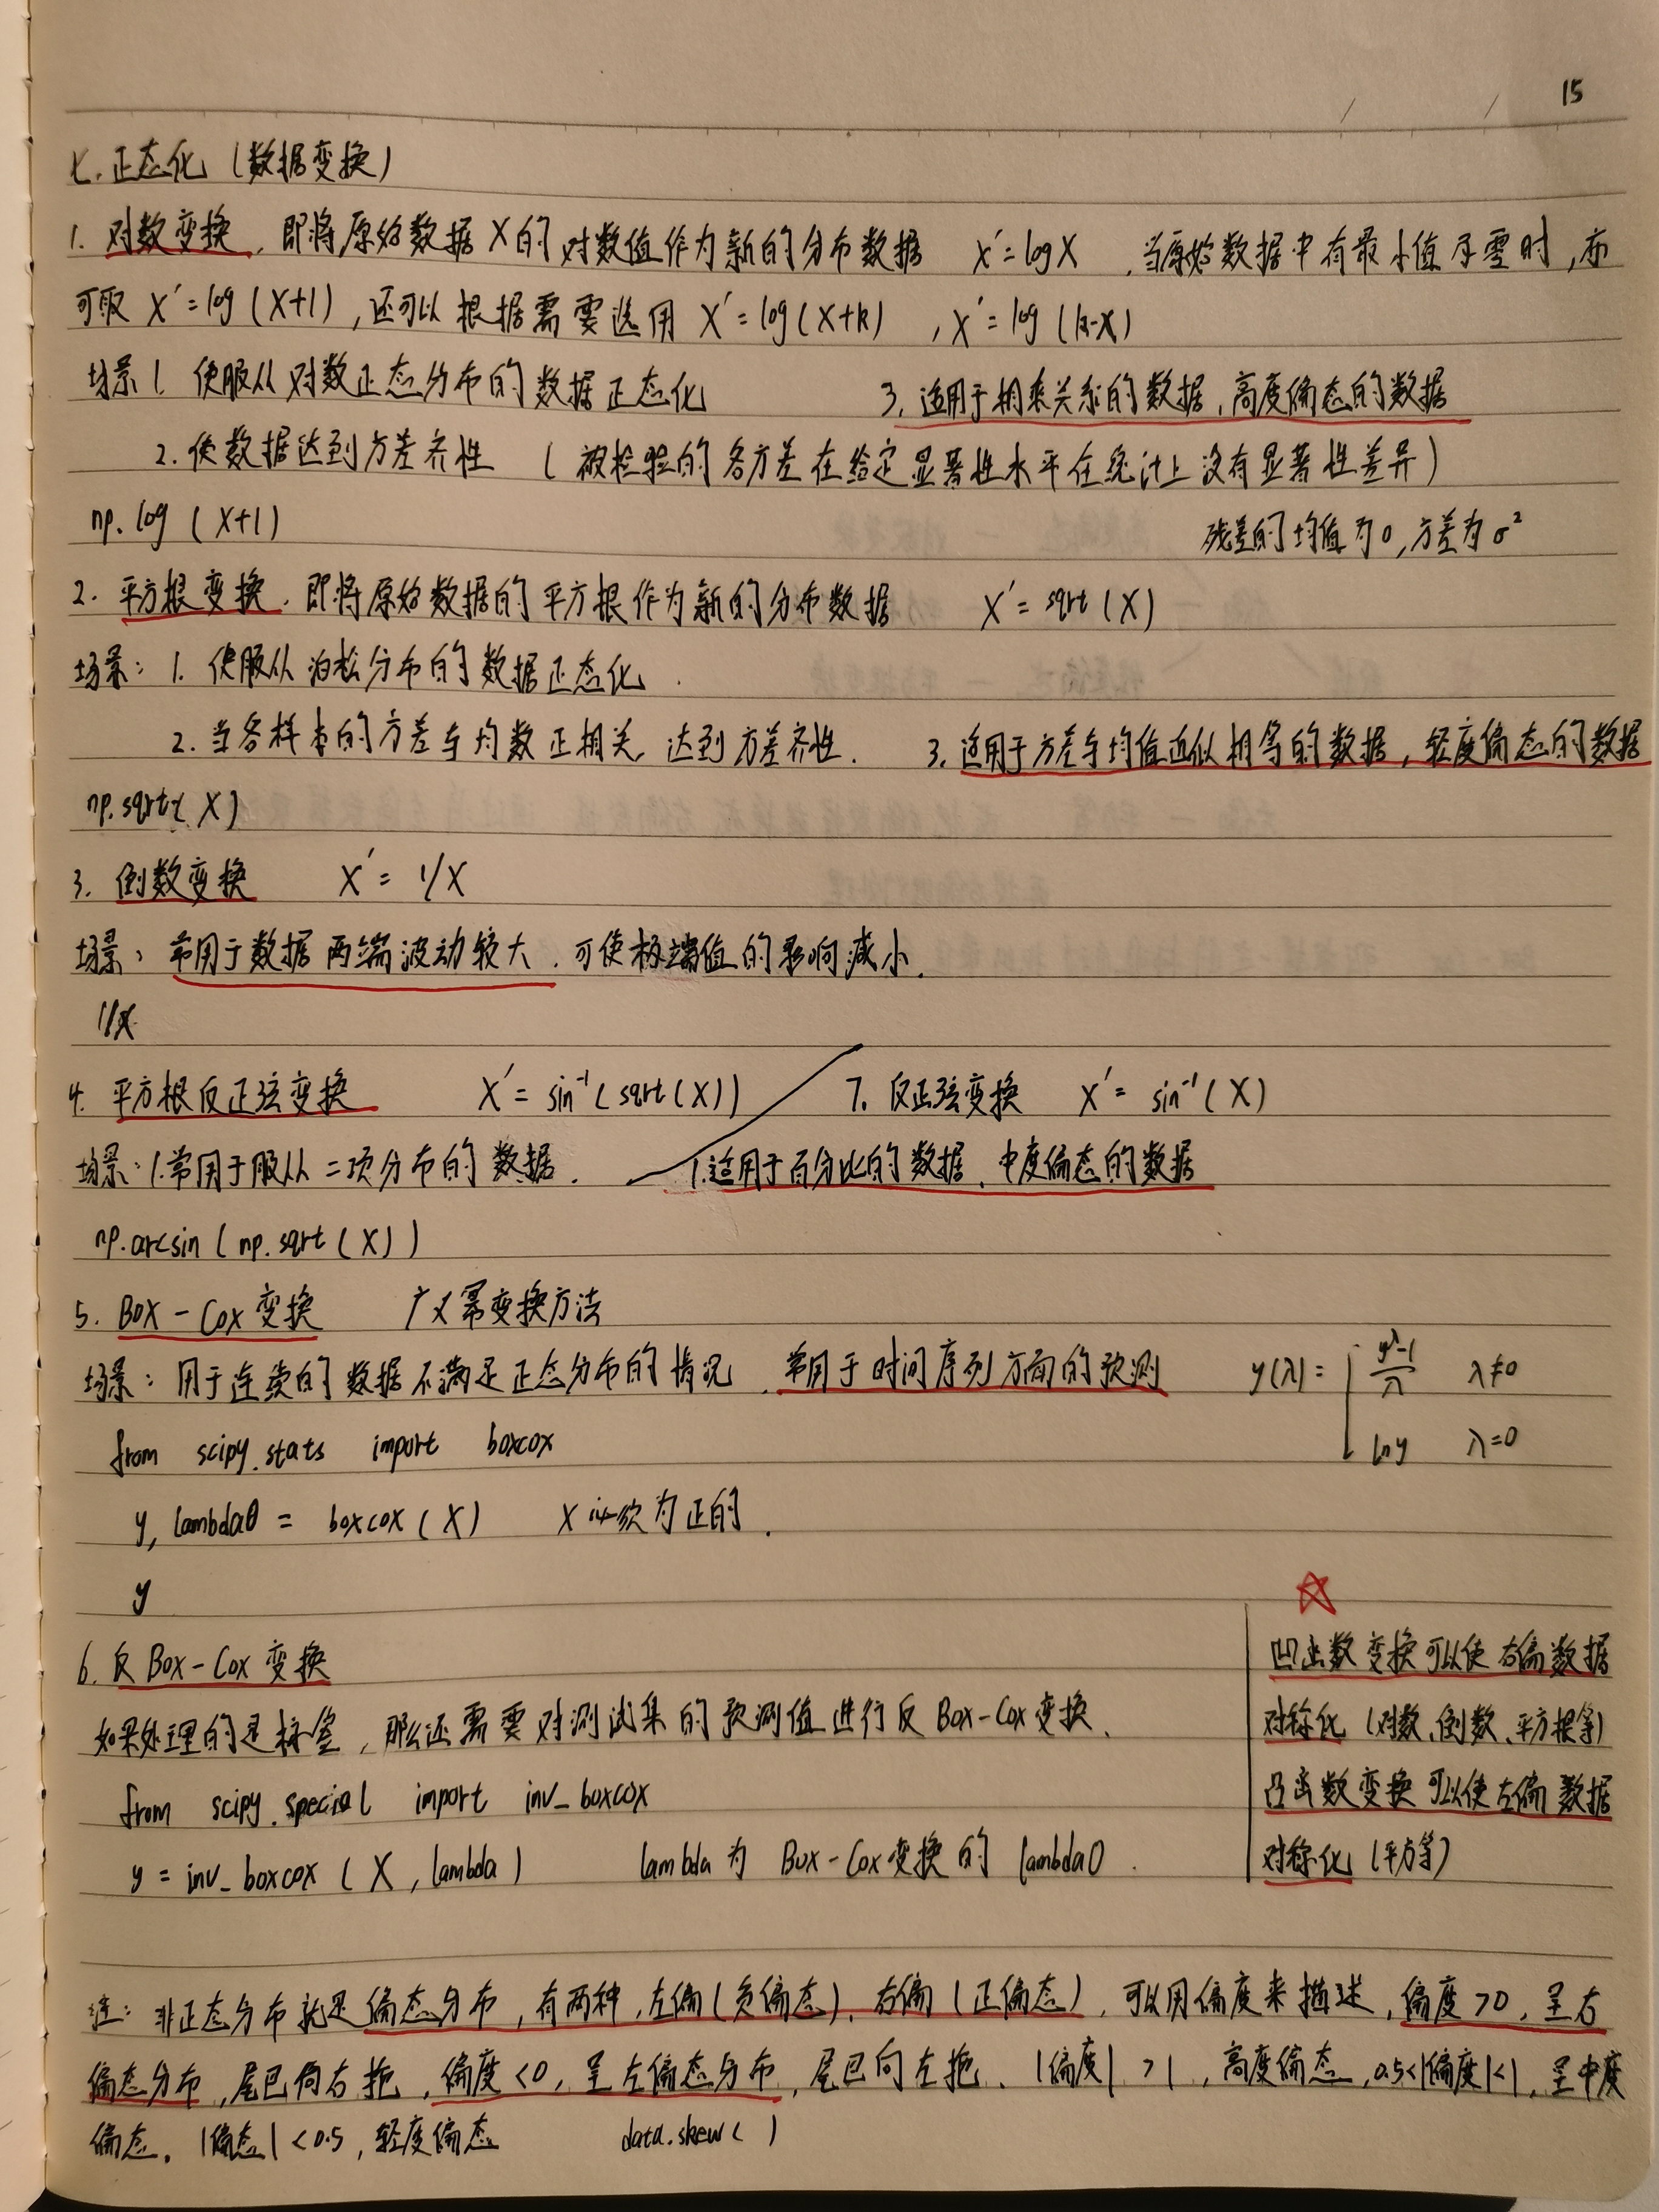 15
七.正态化（数据变换）
1. 对数变换，即将原始数据X的对数值作为新的分布数据 X′=logX ，当原始数据中有最小值及零时，亦
可取 X′=log(X+1)，还可以根据需要选用 X′=log(X+k)，X′=log(k-X)
场景 1. 使服从对数正态分布的数据正态化 3. 适用于相乘关系的数据，高度偏态的数据
2. 使数据达到方差齐性 （被检验的各方差在给定显著性水平在统计上没有显著性差异）
np.log(X+1) 残差的均值为0，方差为σ²
2. 平方根变换，即将原始数据的平方根作为新的分布数据 X′=sqrt(X)
场景：1. 使服从泊松分布的数据正态化.
2. 当各样本的方差与均数正相关，达到方差齐性. 3. 适用于方差与均值近似相等的数据，轻度偏态的数据
np.sqrt(X)
3. 倒数变换 X′=1/X
场景：常用于数据两端波动较大，可使极端值的影响减小.
1/X
4. 平方根反正弦变换 X′=sin⁻¹(sqrt(X)) 7. 反正弦变换 X′=sin⁻¹(X)
场景：1.常用于服从二项分布的数据. 1.适用于百分比的数据，中度偏态的数据
np.arcsin(np.sqrt(X))
5. Box-Cox变换 广义幂变换方法
场景：用于连续的数据不满足正态分布的情况，常用于时间序列方面的预测 y(λ)={ (y^λ-1)/λ λ≠0
from scipy.stats import boxcox ln y λ=0
y, lambda0 = boxcox(X) X必须为正的.
y
6. 反Box-Cox变换
如果处理的是标签，那么还需要对测试集的预测值进行反Box-Cox变换、
from scipy.special import inv_boxcox
y = inv_boxcox(X, lambda) lambda为Box-Cox变换的lambda0.
凹函数变换可以使右偏数据
对称化（对数、倒数、平方根等）
凸函数变换可以使左偏数据
对称化（平方等）
注：非正态分布就是偏态分布，有两种，左偏（负偏态），右偏（正偏态），可以用偏度来描述，偏度>0，呈右
偏态分布，尾巴向右拖，偏度<0，呈左偏态分布，尾巴向左拖、|偏度|>1，高度偏态，0.5<|偏度|<1，呈中度
偏态。|偏态|<0.5，轻度偏态 data.skew()